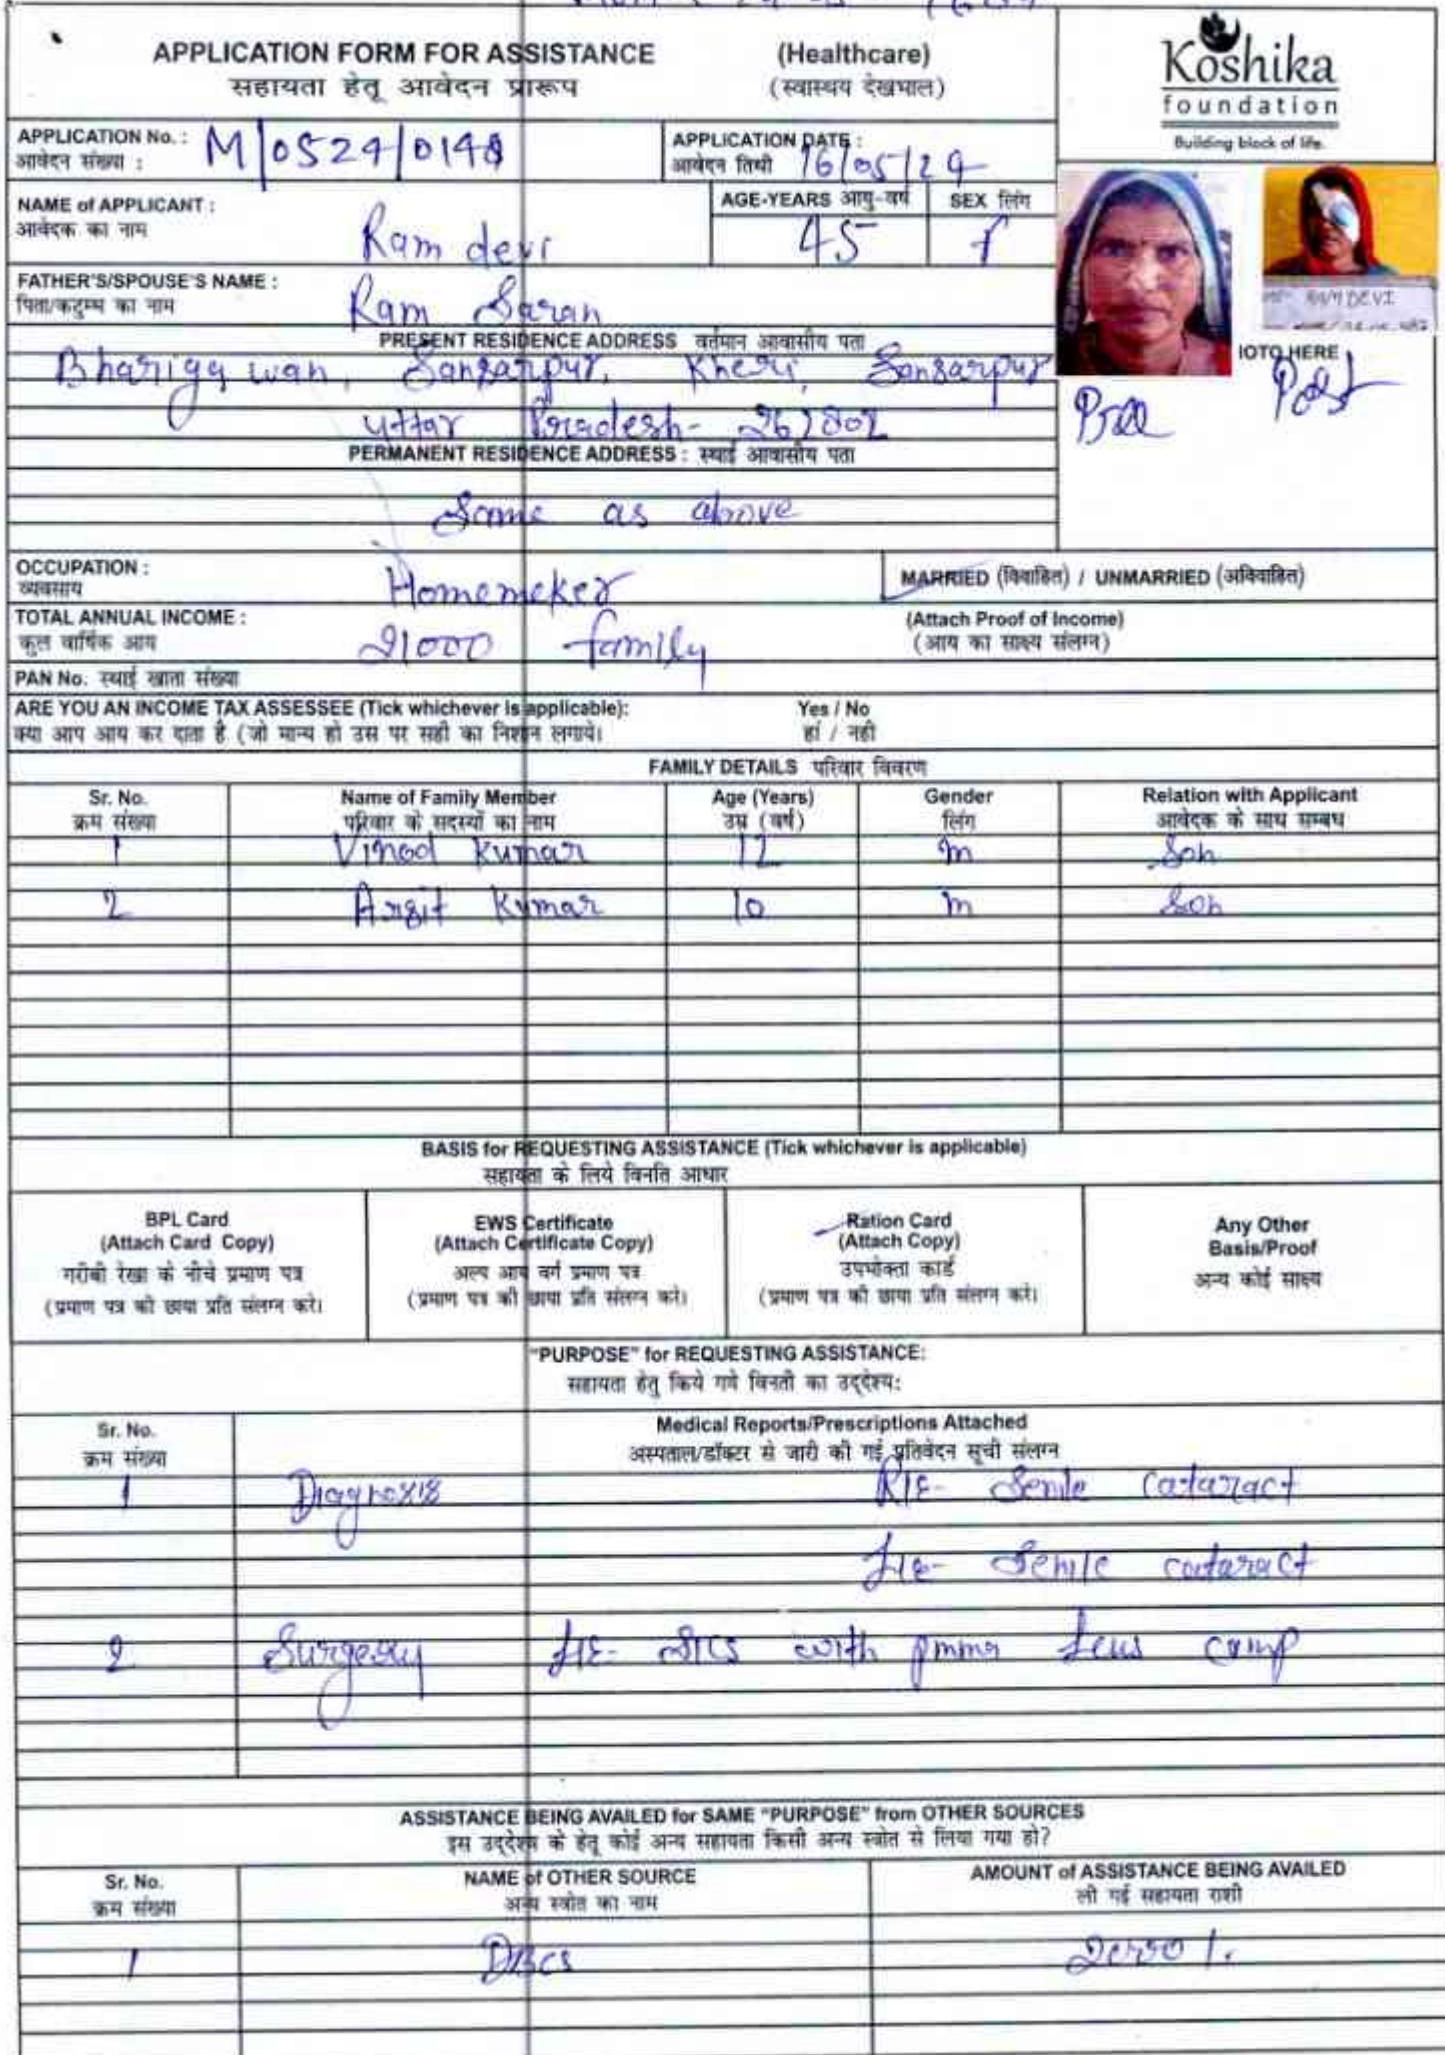 APPLICATION FORM FOR ASSISTANCE (Healthcare)
सहायता हेतू आवेदन प्रारूप (स्वास्थय देखभाल)
Koshika
foundation
Building block of life.
APPLICATION No. : M/0524/0148
आवेदन संख्या :
APPLICATION DATE : 16/05/24
आवेदन तिथी
NAME of APPLICANT : Ram devi
आवेदक का नाम
AGE-YEARS आयु-वर्ष 45
SEX लिंग f
FATHER'S/SPOUSE'S NAME : Ram Saran
पिता/कटुम्ब का नाम
PRESENT RESIDENCE ADDRESS वर्तमान आवासीय पता
Bharigawan, Sansarpur, Kheri, Sansarpur
Uttar Pradesh- 262802
OTO HERE
Pre Post
PERMANENT RESIDENCE ADDRESS : स्थाई आवासीय पता
Same as above
OCCUPATION : Homemeker
व्यवसाय
MARRIED (विवाहित) / UNMARRIED (अविवाहित)
TOTAL ANNUAL INCOME : 21000 family
कुल वार्षिक आय
(Attach Proof of Income)
(आय का साक्ष्य संलग्न)
PAN No. स्थाई खाता संख्या
ARE YOU AN INCOME TAX ASSESSEE (Tick whichever is applicable): Yes / No
क्या आप आय कर दाता है (जो मान्य हो उस पर सही का निशान लगाये। हां / नही
FAMILY DETAILS परिवार विवरण
Sr. No. Name of Family Member Age (Years) Gender Relation with Applicant
क्रम संख्या परिवार के सदस्यों का नाम उम्र (वर्ष) लिंग आवेदक के साथ सम्बध
1 Vinod Kumar 12 m Son
2 Argit Kumar 10 m Son
BASIS for REQUESTING ASSISTANCE (Tick whichever is applicable)
सहायता के लिये विनति आधार
BPL Card
(Attach Card Copy)
गरीबी रेखा के नीचे प्रमाण पत्र
(प्रमाण पत्र की छाया प्रति संलग्न करे।
EWS Certificate
(Attach Certificate Copy)
अल्प आय वर्ग प्रमाण पत्र
(प्रमाण पत्र की छाया प्रति संलग्न करे।
Ration Card
(Attach Copy)
उपभोक्ता कार्ड
(प्रमाण पत्र की छाया प्रति संलग्न करे।
Any Other
Basis/Proof
अन्य कोई साक्ष्य
"PURPOSE" for REQUESTING ASSISTANCE:
सहायता हेतु किये गये विनती का उद्देश्य:
Sr. No. Medical Reports/Prescriptions Attached
क्रम संख्या अस्पताल/डॉक्टर से जारी की गई प्रतिवेदन सूची संलग्न
1 Diagnosis R/E- Senile Cataract
L/E- Senile cataract
2 Surgery L/E- SICS with pmma Lens
ASSISTANCE BEING AVAILED for SAME "PURPOSE" from OTHER SOURCES
इस उद्देश्य के हेतू कोई अन्य सहायता किसी अन्य स्त्रोत से लिया गया हो?
Sr. No. NAME of OTHER SOURCE AMOUNT of ASSISTANCE BEING AVAILED
क्रम संख्या अन्य स्त्रोत का नाम ली गई सहायता राशी
1 DBCS